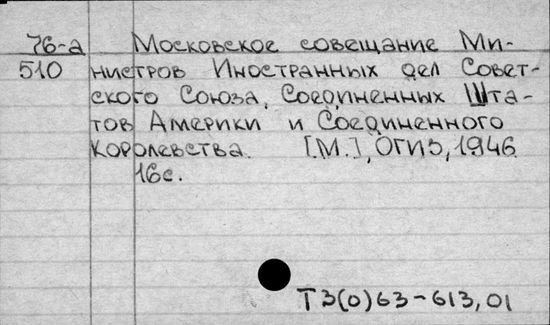 76-а Московское совещание Ми-
510 нистров Иностранных дел Совет-
ского Союза, Соединенных Шта-
тов Америки и Соединенного
Королевства. [М.], ОГИЗ, 1946.
16с.
Т3(0)63-613,01